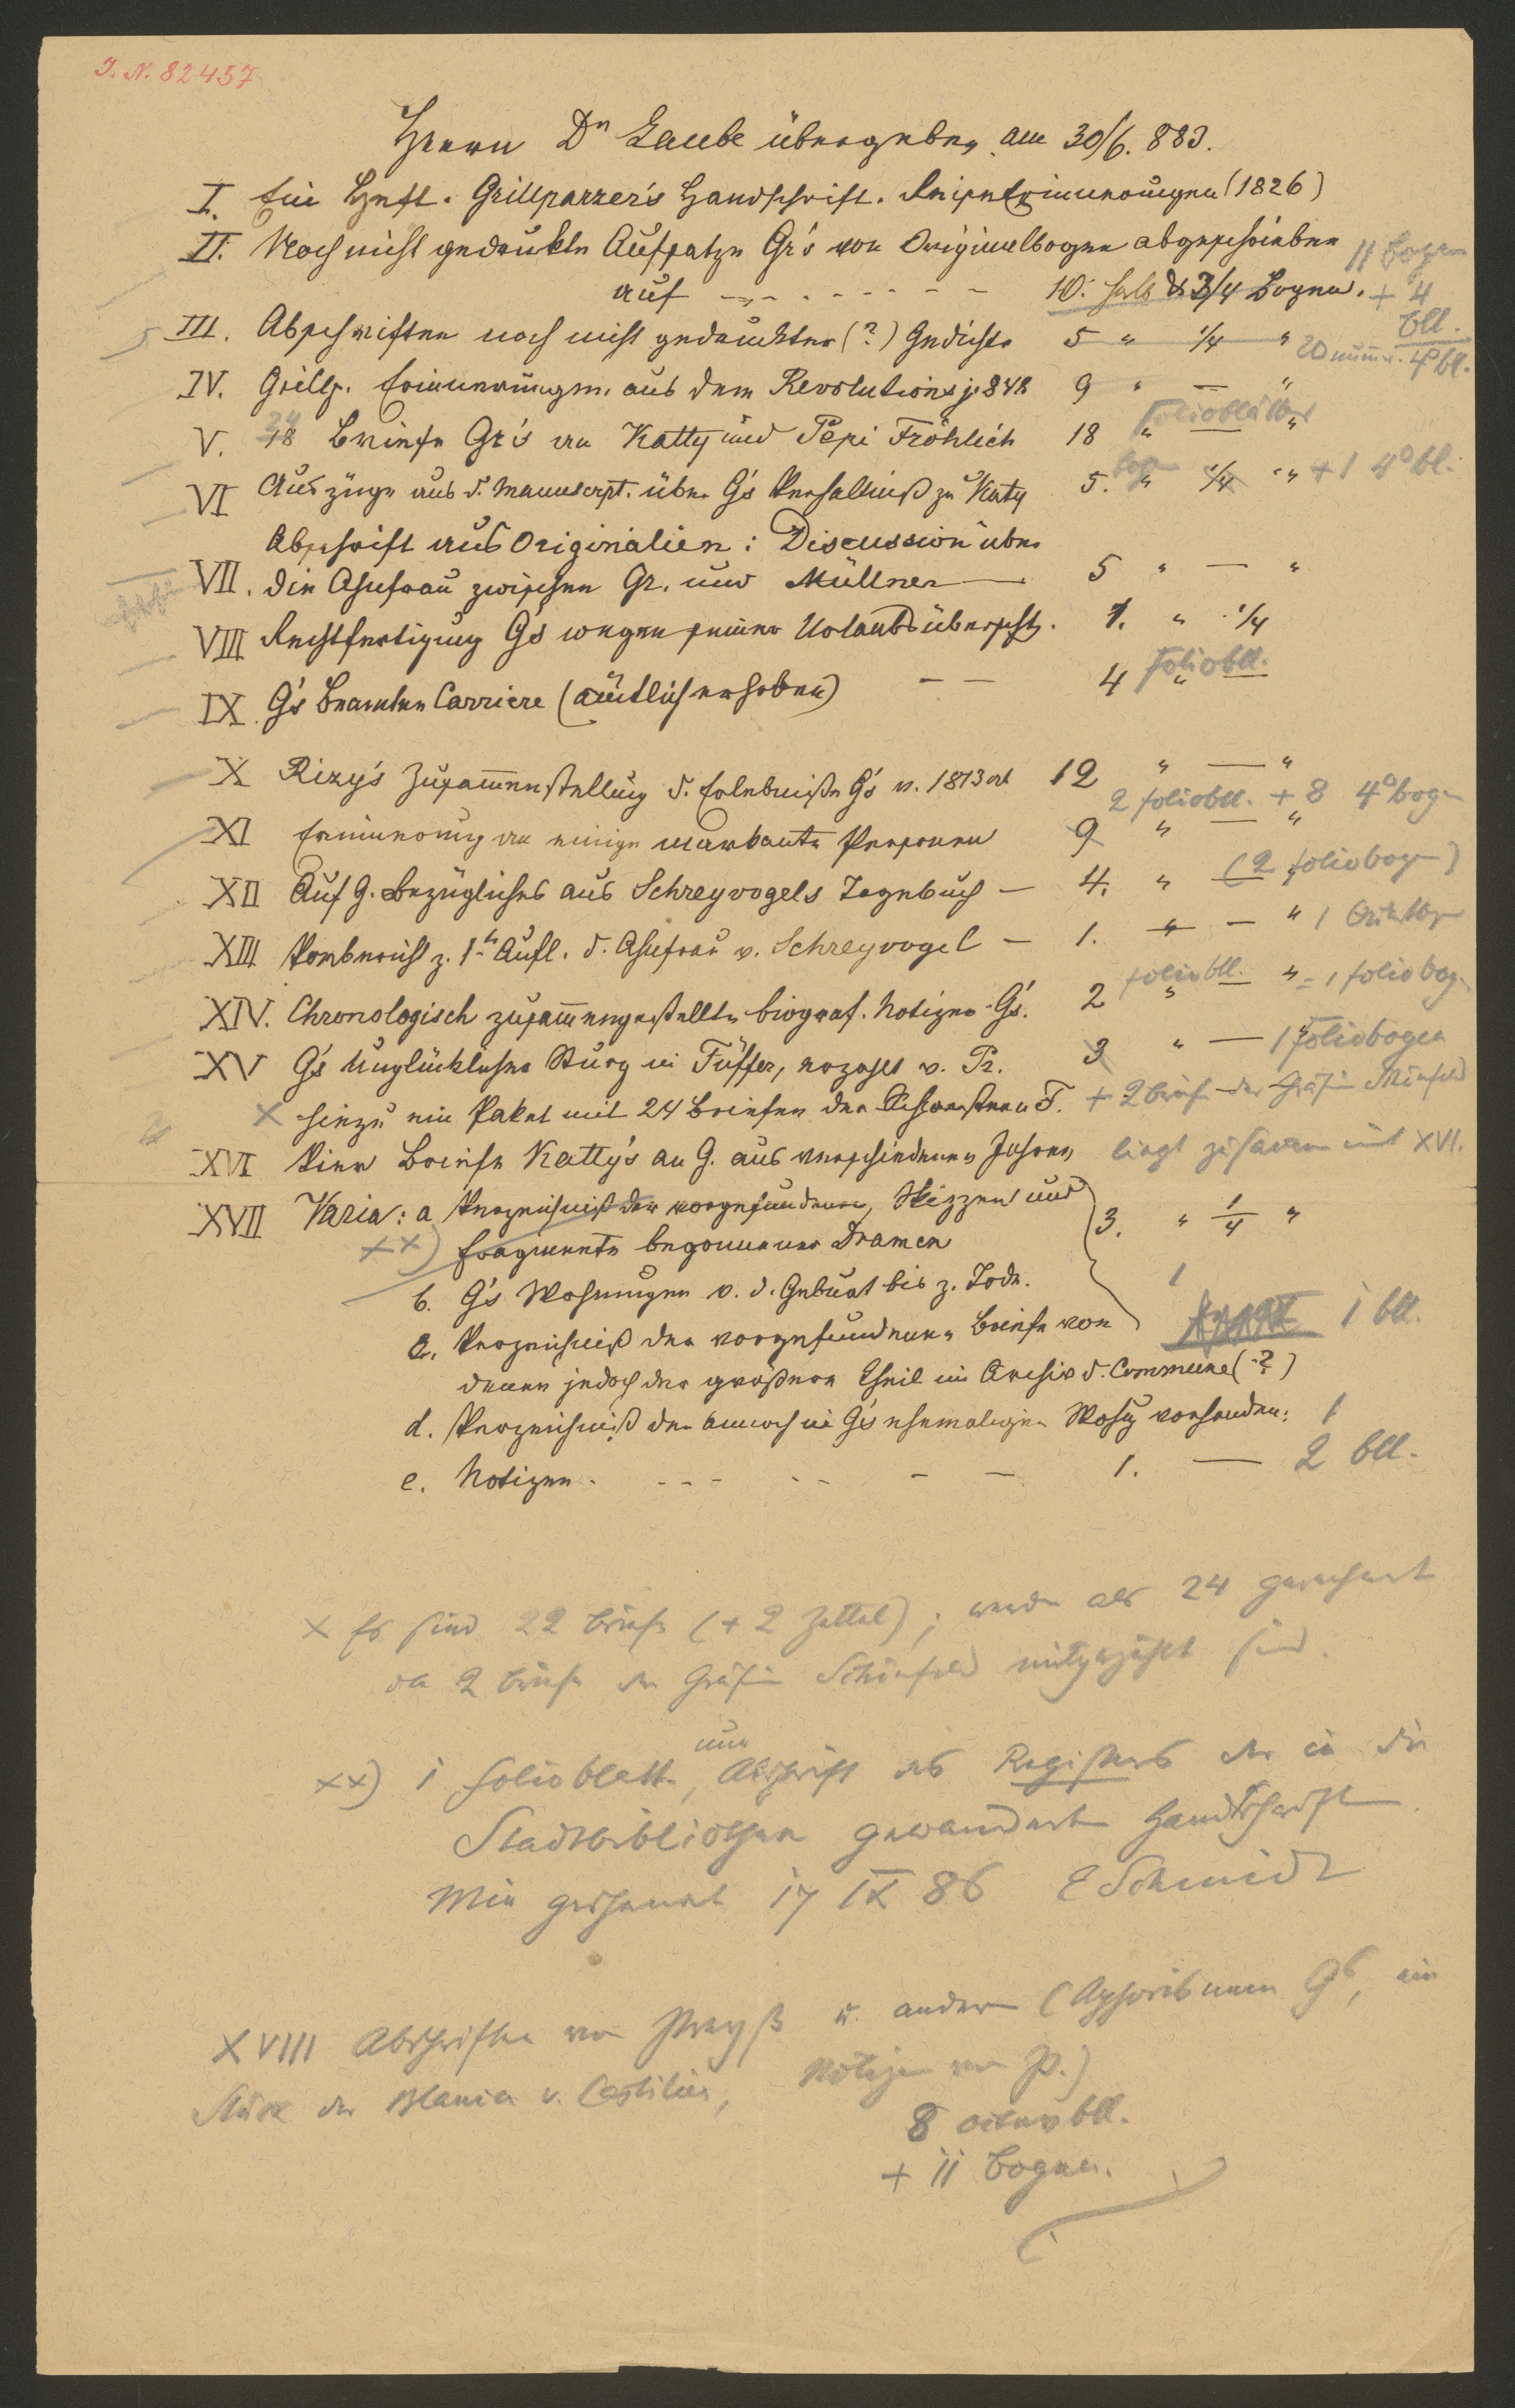 J. N. 82457
Herrn Dr Laube übergeben am 30/6. 883.
I. Ein Heft. Grillparzer's Handschrift. Reiseerinnerungen (1826)
II. Noch nicht gedruckte Aufsätze Gr's von Originalbogen abgeschrieben 11 Bogen
auf - - - - - - - 10. halb & 3/4 Bogen. + 4
III. Abschriften noch nicht gedruckter (?) Gedichte 5 " 1/4 " bll.
20 numm. 4° bl.
IV. Grillp. Erinnerungen aus dem Revolutionsj. 848 9 " — "
V. 18 Briefe Gr's an Katty und Pepi Fröhlich 18 Folioblätter " — "
VI Auszüge aus d. Manuscrpt. über G's Verhältniß zu Katy 5. Bogen " 1/4 " + 1 4° bl.
Abschrift aus Originalien: Discussion über
VII. die Ahnfrau zwischen Gr. und Müllner — 5 " — "
VIII Rechtfertigung G's wegen seiner Urlaubsüberschtg. 1. " 1/4
IX G's Beamten Carriere (ämtlich erhoben) — — 4 Foliobll.
X Rizy's Zusammenstellung d. Erlebniße G's v. 1813 ab 12 " — "
2 foliobll. + 8 4° bogen
XI Erinnerung an einige markante Personen 9 " — "
XII Auf G. Bezügliches aus Schreyvogels Tagebuch — 4. " — (2 foliobogen)
XIII Vorbericht z. 1t Aufl. d. Ahnfrau v. Schreyvogel — 1. " — " 1
XIV. Chronologisch zusammengestellte biograf. Notizen G's. 2 foliobll. " — " = 1 foliobogen
XV G's Unglücklicher Sturz in Tüffer, erzählt v. Pr. 3 " — 1 Foliobogen
X hiezu ein Paket mit 24 Briefen der Schwestern F. + 2 briefe der Gräfin Schönfeld
XVI Vier Briefe Katty's an G. aus verschiedenen Jahren liegt zusammen mit XVI.
XVII Varia: a Verzeichniß der vorgefundenen, Skizzen und
xx) Fragmente begonnener Dramen 3. " 1/4 "
b. G's Wohnungen v. d. Geburt bis z. Tode. 1
c. Verzeichniß der vorgefundenen Briefe von 1 bll.
denen jedoch der größere Theil im Archiv d. Commune (?)
d. Verzeichniß der annoch in G's ehemaliger Wohng vorhanden: 1
e. Notizen - - - - - — — 1. — 2 bll.
X Es sind 22 briefe (+ 2 Zettel); werden als 24 gerechnet
da 2 briefe der Gräfin Schönfeld mitgezählt sind.
xx) 1 folioblatt, nur Abschrift des Registers der in die
Stadtbibliothek gewanderten Handschriften
Mir gesandt 17 IX 86 E Schmidt
XVIII Abschriften von Preyß u. andern (Aphorismen Gs, ein
Stück der Blanka v. Castilien, Notizen von P.)
8 octavbll.
+ 11 bogen.